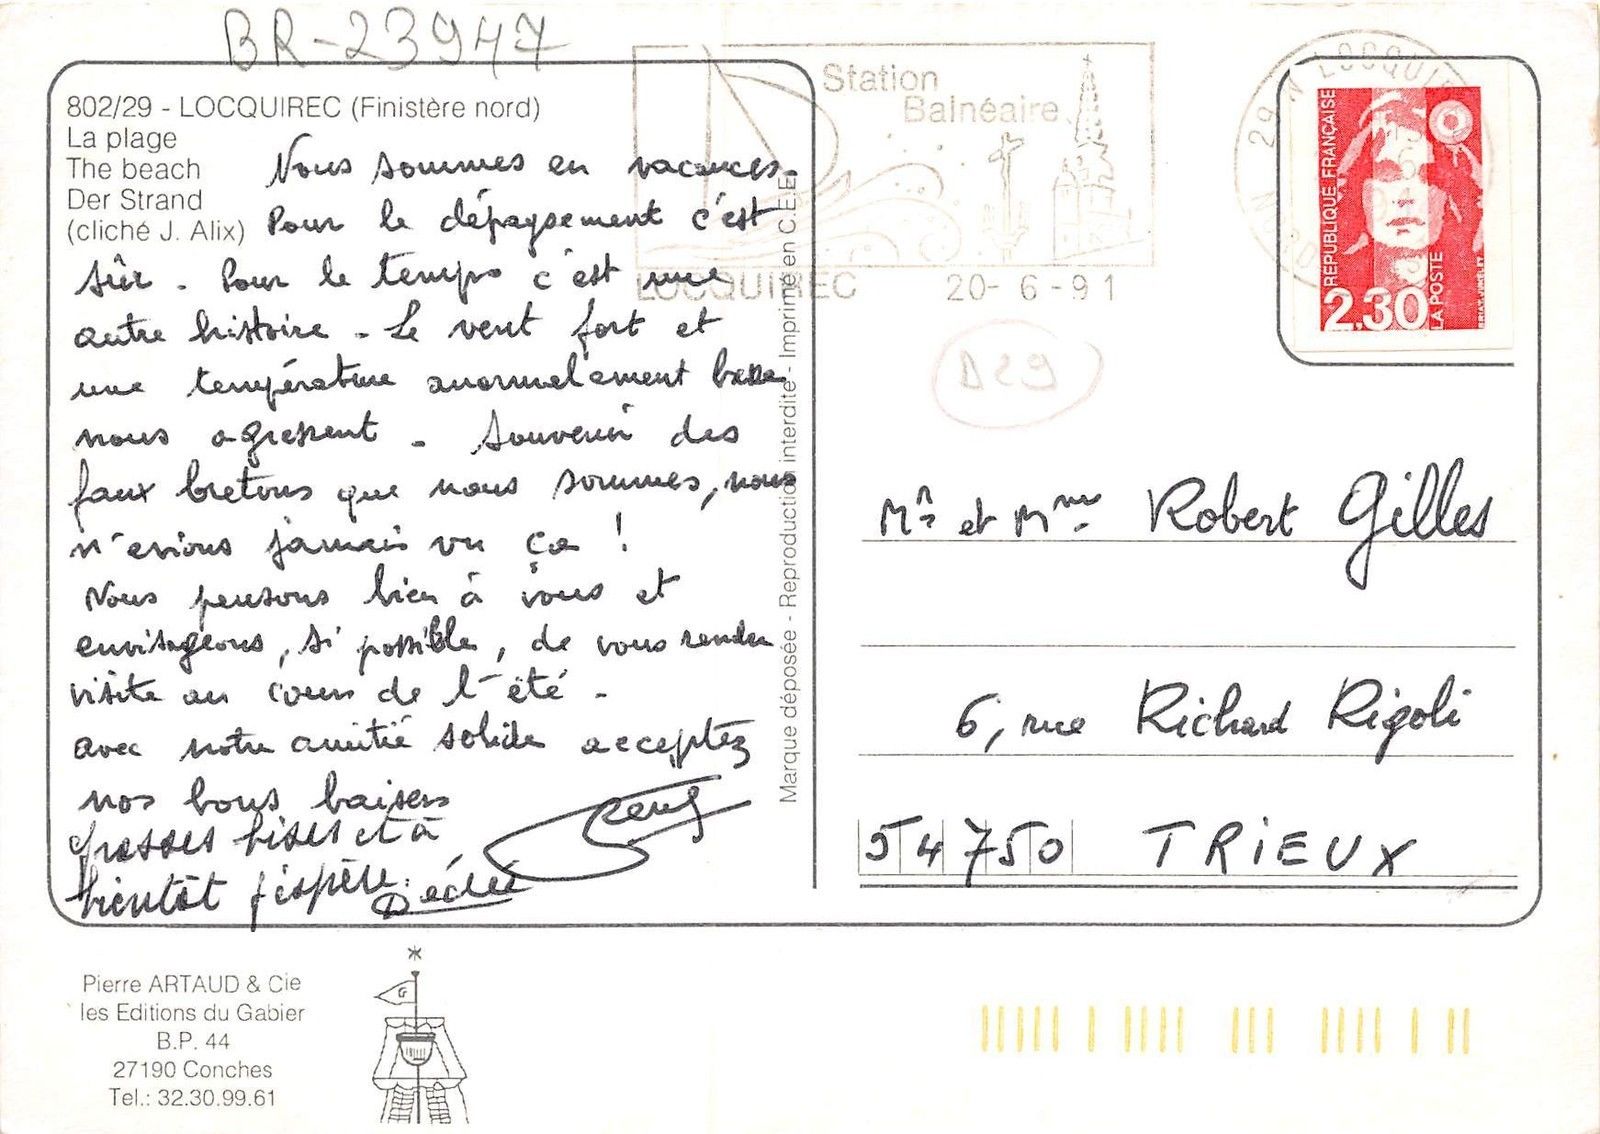 BR-23947
802/29 - LOCQUIREC (Finistère nord)
La plage
The beach
Der Strand
(cliché J. Alix)
Nous sommes en vacances.
Pour le dépaysement c'est
sûr - Pour le temps c'est une
autre histoire - Le vent fort et
une température anormalement basse
nous agressent - Souvenir des
faux bretons que nous sommes, nous
n'avions jamais vu ça !
Nous pensons bien à vous et
envisageons, si possible, de vous rendre
visite au cours de l'été -
avec notre amitié solide acceptez
nos bons baisers
Grosses bises et à
bientôt j'espère.
Marque déposée - Reproduction interdite - Imprimé en C.E.E.
Station
Balnéaire
LOCQUIREC 20- 6 -91
29 N LOCQUIREC
RÉPUBLIQUE FRANÇAISE
2,30
LA POSTE
D29
Mr et Mme Robert Gilles
6, rue Richard Rigoli
54750 TRIEUX
Pierre ARTAUD & Cie
les Editions du Gabier
B.P. 44
27190 Conches
Tel.: 32.30.99.61
G